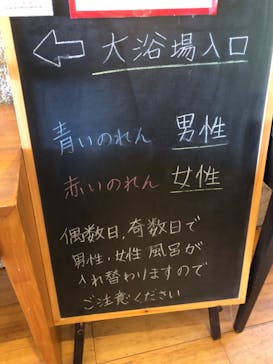 ← 大浴場入口
青いのれん 男性
赤いのれん 女性
偶数日、奇数日で
男性・女性 風呂が
入れ替わりますので
ご注意ください